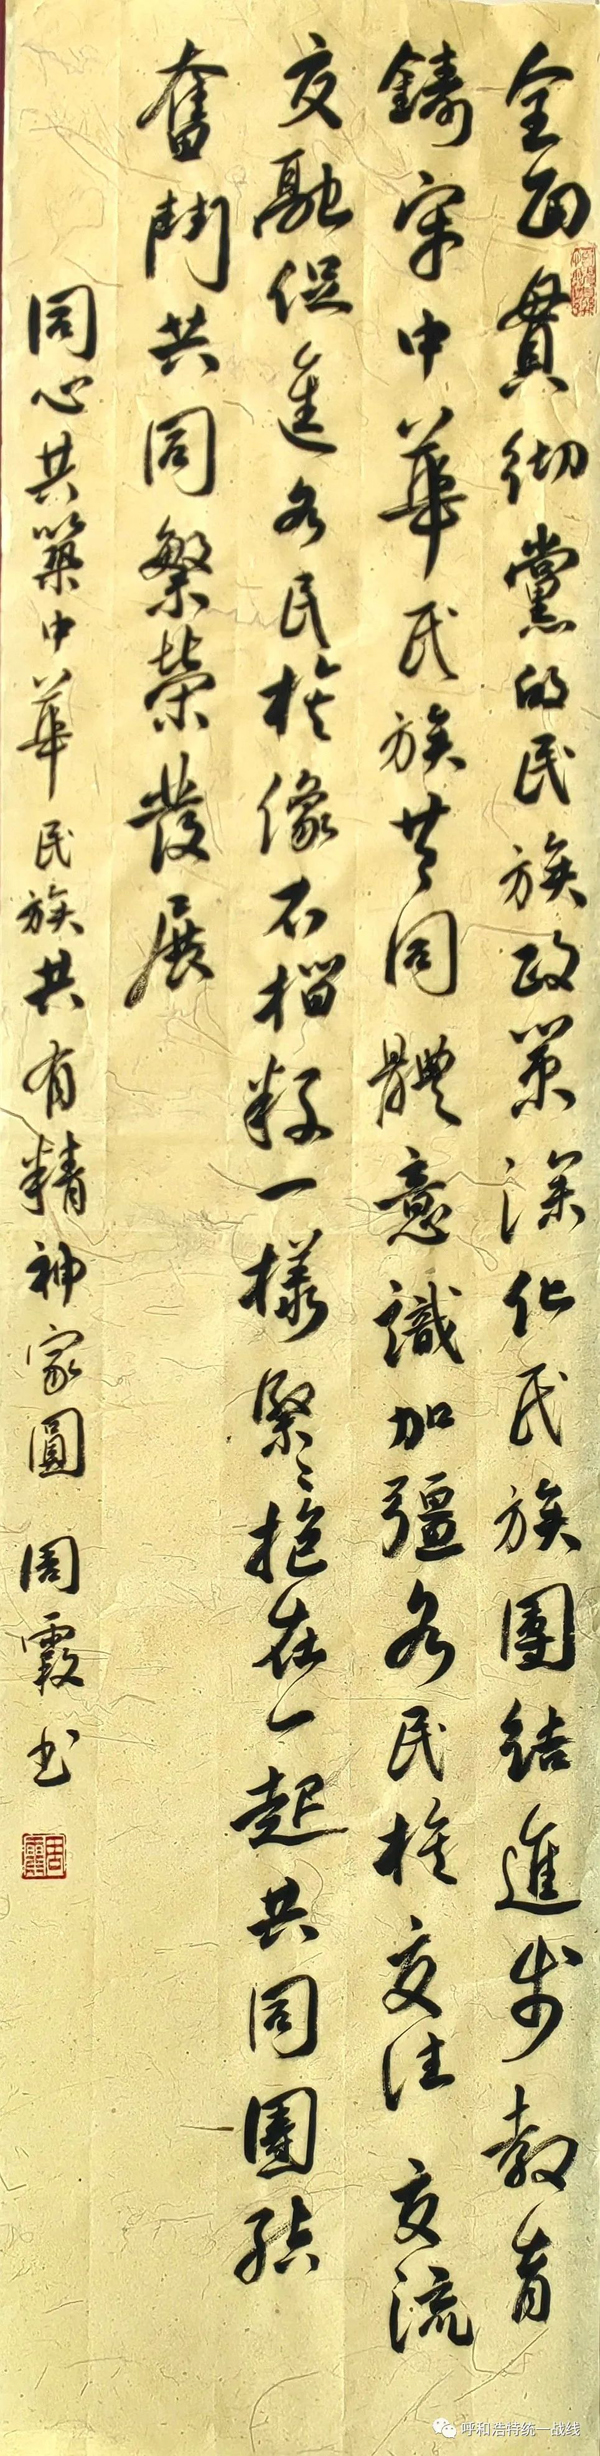 全面貫彻黨的民族政策深化民族團結進步教育
鑄牢中華民族共同體意識加強各民族交往交流
交融促進各民族像石榴籽一樣緊々抱在一起共同團結
奮鬥共同繁榮發展
同心共築中華民族共有精神家圓 周霞书
周霞
呼和浩特统一战线